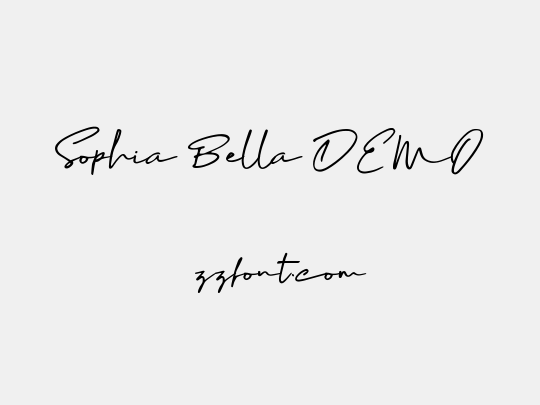 Sophia Bella DEMO
zzfont.com